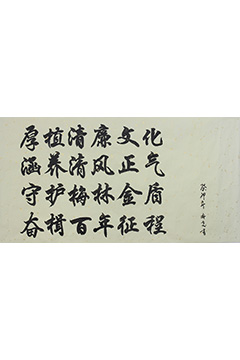 厚植清廉文化
涵养清风正气
守护梅林金盾
奋楫百年征程
癸卯年